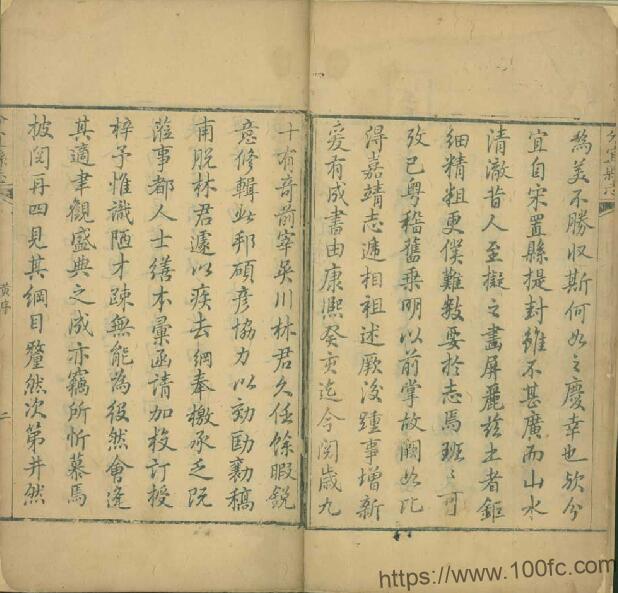 為美不勝収斯何如之慶幸也欤分
宜自宋置縣提封雖不甚廣而山水
清澈昔人至擬之畫屏麗兹土者鉅
細精粗更僕難数要於志焉班〻可
攷已粤稽舊乗明以前掌故闕如阮
得嘉靖志遞相祖述厥後踵事增新
爰有成書由康熙癸亥迄今閱歲九
十有奇前宰吳川林君久任餘暇銳
意修輯此邦碩彥協力以勷勷稿
甫脱林君遽以疾去綱奉檄承乏阮
蒞事都人士繕本彙函請加校訂授
梓予惟識陋才疎無能為役然會逢
其適聿觀盛典之成亦竊所忻慕焉
披閱再四見其綱目釐然次第井然
分宜縣志
黄序
二
https://www.100fc.com